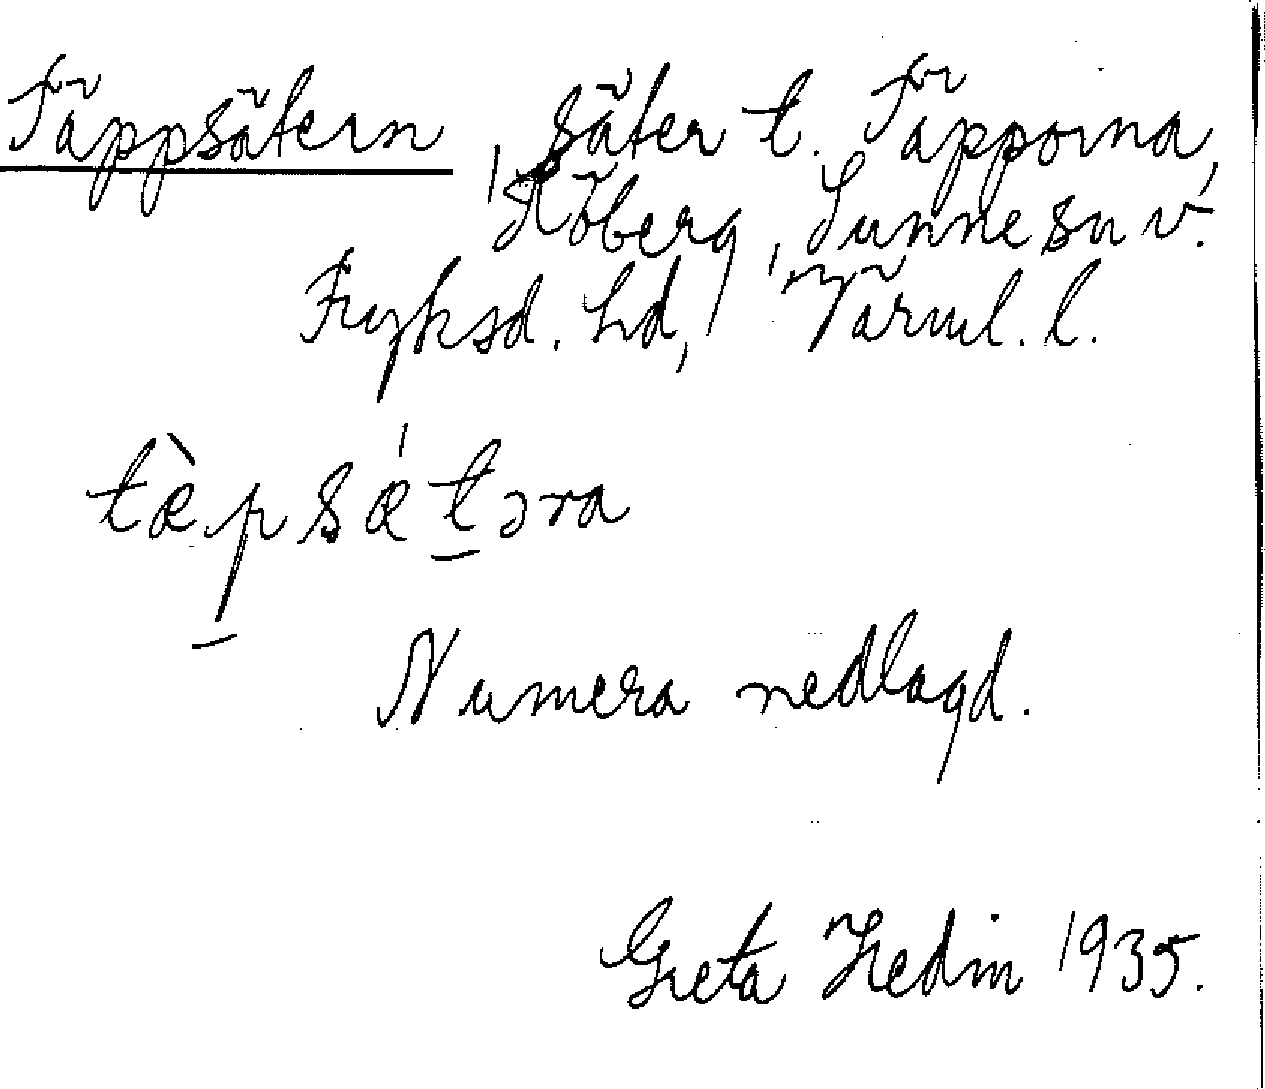 Täppsätern, säter t. Täpporna,
Höberg, Sunne sn v.
Fryksd. hd, Värml. l.
tæ̀p̲sǽt̲əra
Numera nedlagd.
Greta Hedin 1935.